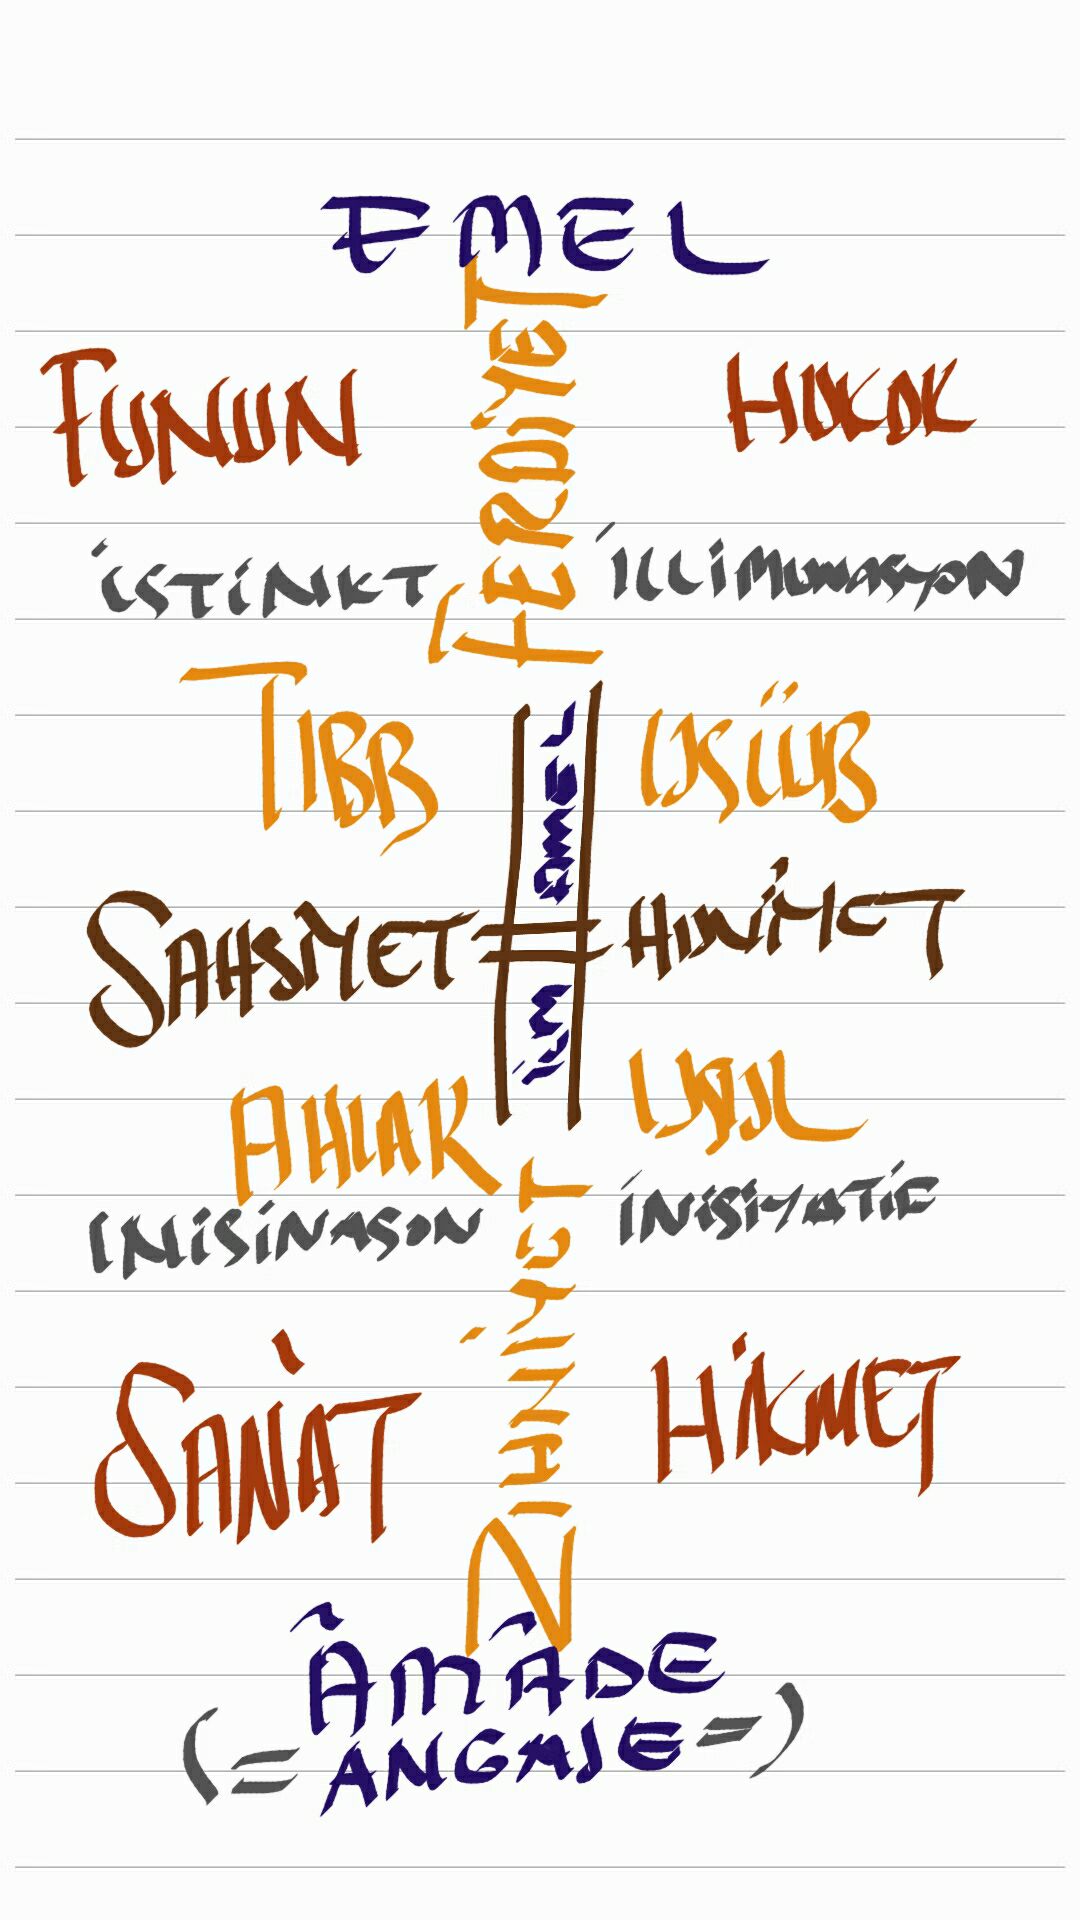 EMEL
FERDİYET
FUNUN HUKUK
İSTİNKT İLLİMUNASYON
TIBB USÜUB
AMEL
SAHSİYET HUVİYET
İLM
AHLAK USUL
İNİSİNASON İNİSİYATİF
ZİHNİYET
SANAT HİKMET
ÂMÂDE
(= ANGAJE =)